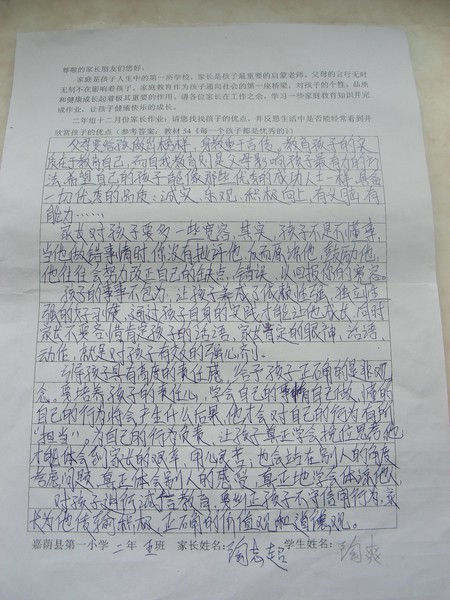 尊敬的家长朋友们您好:
家庭是孩子人生中的第一所学校，家长是孩子最重要的启蒙老师。父母的言行无时
无刻不在影响着孩子。家庭教育作为孩子通向社会的第一座桥梁，对孩子的个性、品质
和健康成长起着极其重要的作用。请各位家长在工作之余，学习一些家庭教育知识并完
成作业，让孩子健康快乐的成长。
二年组十二月份家长作业：请您找找孩子的优点，并反思生活中是否能经常看到并
欣赏孩子的优点（参考答案：教材54《每一个孩子都是优秀的》）
父母要给孩子做当榜样，身教重于言传，教育孩子的实
质在于教育自己，而自我教育则是父母影响孩子最有力的方
法，希望自己的孩子能像那些优秀的成功人士一样，具备
一切优秀的品质：诚实、乐观、积极向上、有头脑、有
能力……
家长对孩子要多一些宽容，其实，孩子不是不懂事，
当他做错事情时，你没有批评他，反而原谅他，鼓励他，
他往往会努力改正自己的缺点、错误，以回报你的宽容。
孩子的事事不包办，让孩子养成了依赖性强，独立性
强的好习惯，通过孩子自身的实践才能让他成长，同时
家长不要吝惜肯定孩子的话语，家长肯定的眼神、话语、
动作，就是对孩子有效的强心剂。
培养孩子具有高度的责任感，给予孩子正确的是非观
念，要培养孩子的责任心，学会自己的事情自己做，懂的
自己的行为将会产生什么后果，他才会对自己的行为有所
“担当”。为自己的行为负责，让孩子真正学会换位思考，他
才能体会到家长的艰辛，用心良苦，也会站在别人的角度
考虑问题，真正体会别人的感受，真正地学会体谅他人。
对孩子进行诚信教育，要纠正孩子不守信用行为，家
长为他传输积极、正确的价值观和道德观。
嘉荫县第一小学 二年 五班 家长姓名： 陶志超 学生姓名： 陶爽